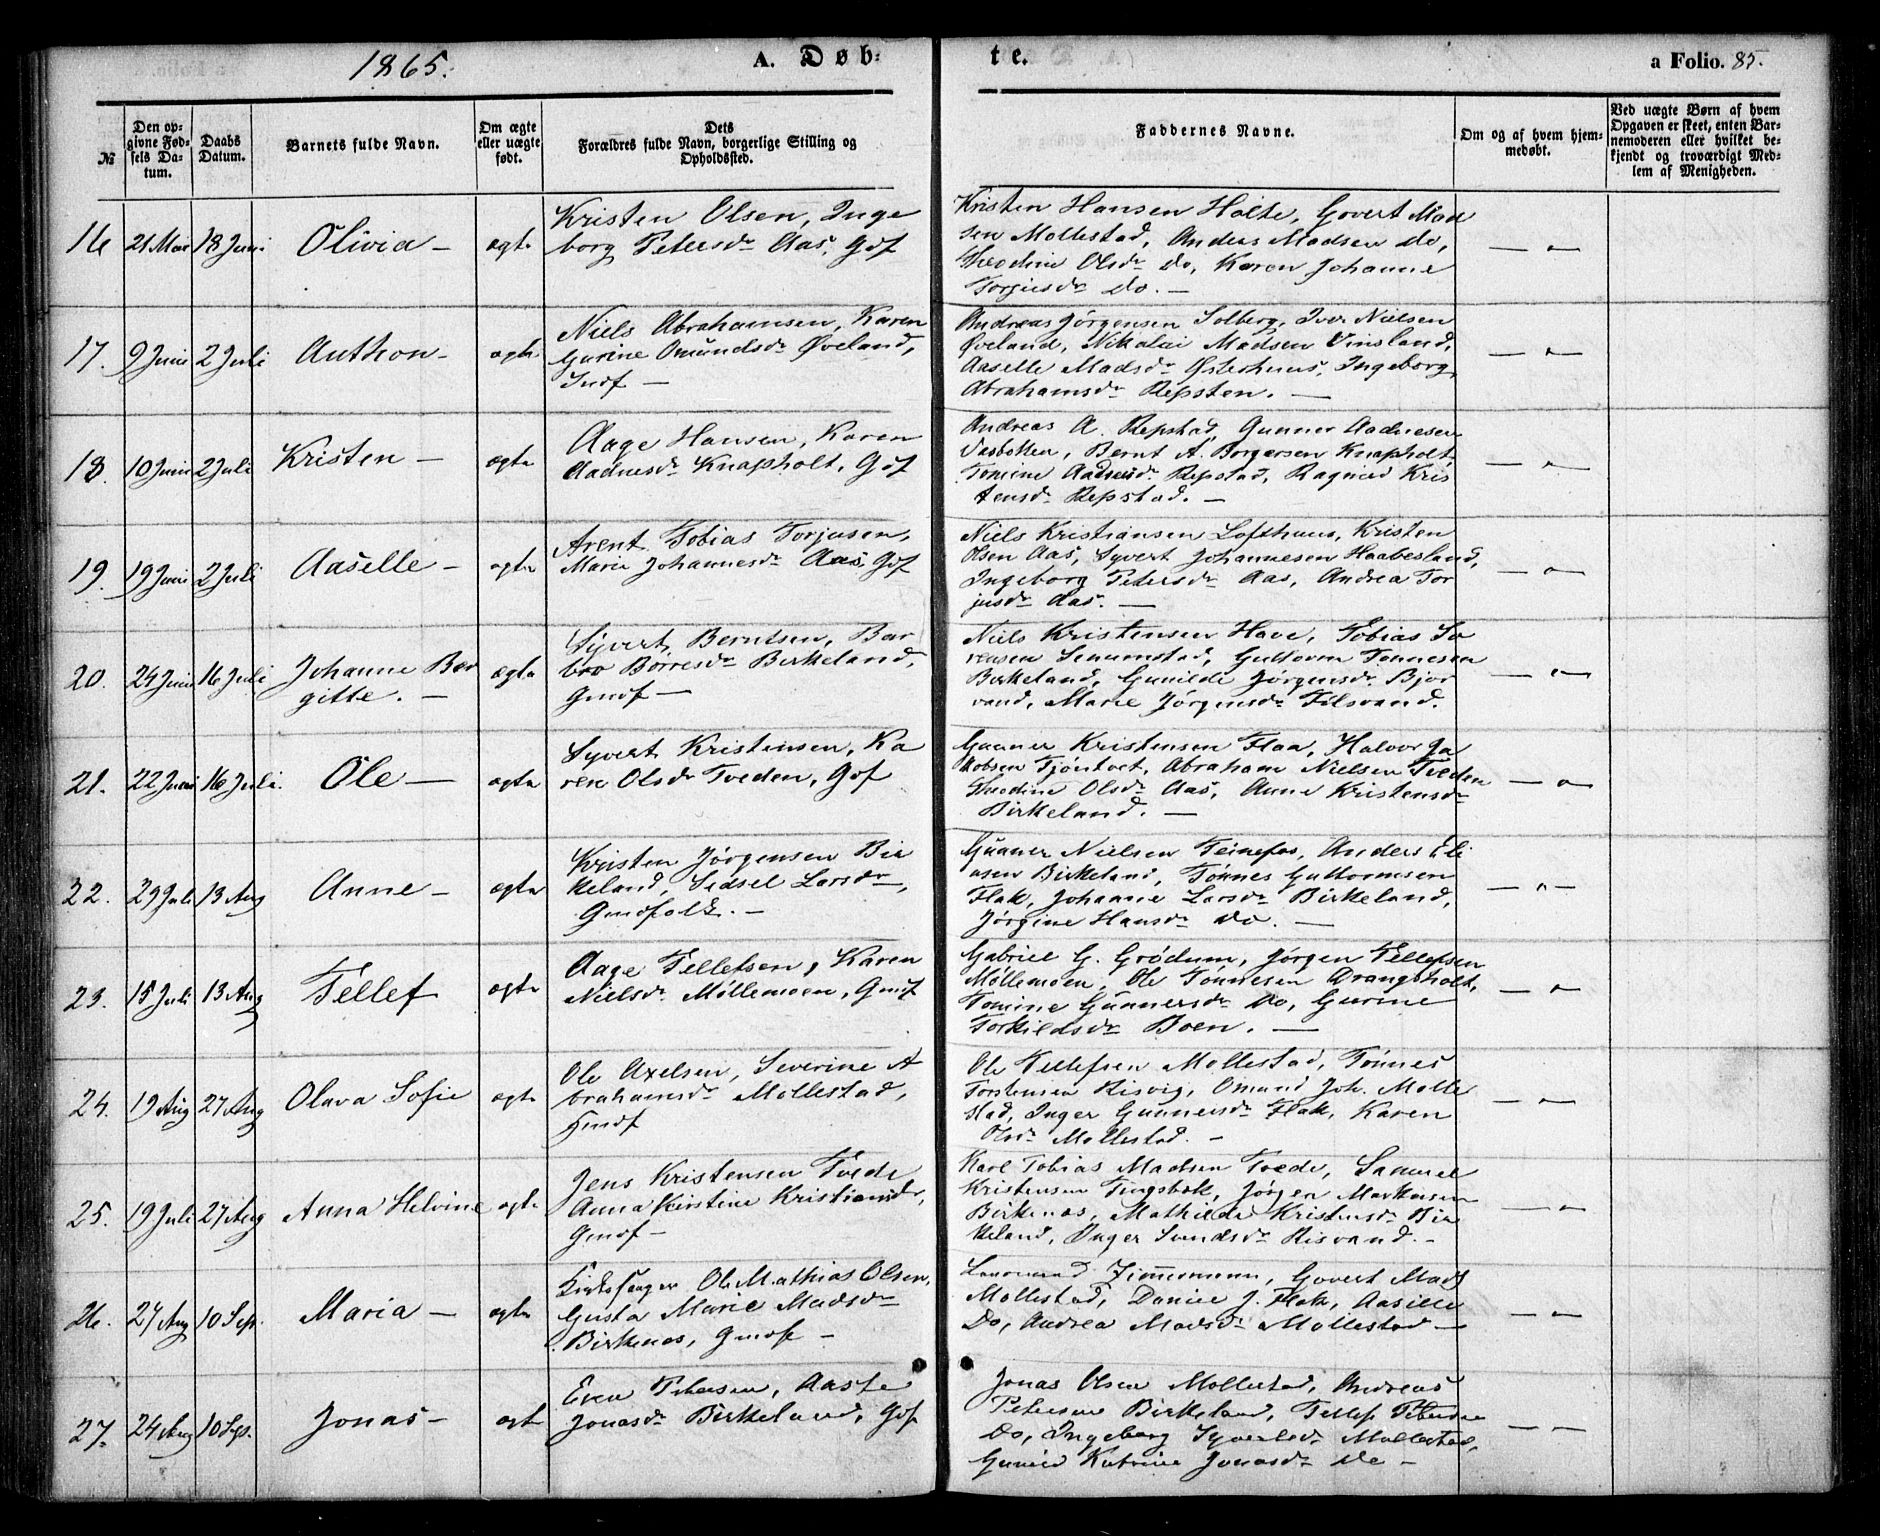 1865.
A. Døb-
te.
a Folio. 85.
№
Den op-
givne Fød-
sels Da-
tum.
Daabs
Datum.
Barnets fulde Navn.
Om ægte
eller uægte
født.
Dets
Forældres fulde Navn, borgerlige Stilling og
Opholdssted.
Faddernes Navne.
Om og af hvem hjem-
medøbt.
Ved uægte Børn af hvem
Opgaven er skeet, enten Bar-
nemoderen eller hvilket be-
kjendt og troværdigt Med-
lem af Menigheden.
16 21 Mai 18 Juni Olivia — ægte
Kristen Olsen, Inge
borg Petersdr Aas, Gdf
Kristen Hansen Holte, Govert Mad
sen Mollestad, Anders Madsen Do,
Theodine Olsdr Do, Karen Johanne
Torjusdr Do. —
— " —
17. 9 Juni 2 Juli Anthon — ægte
Niels Abrahamsen, Karen
Gurine Omundsdr Øveland,
Indf —
Andreas Jørgensen Solberg, Iver Nielsen
Øveland, Nikolai Madsen Vinsland,
Aaselle Madsdr Østerhuus, Ingeborg
Abrahamsdr Repsten. —
— " —
18. 10 Juni 2 Juli Kristen — ægte
Aage Hansen, Karen
Aadnesdr Knapholt, Gdf
Andreas A. Repstad, Gunner Aadnesen
Vasbotten, Bernt A. Borgersen Knapholt,
Tomine Aadnesdr Repstad, Ragnild Kris
tensdr Repstad. —
— " —
19. 19 Juni 2 Juli Aaselle — ægte
Arent Tobias Torjusen,
Marie Johannesdr Aas, Gdf
Niels Kristiansen Lofthuus, Kristen
Olsen Aas, Syvert Johannesen Haabesland,
Ingeborg Petersdr Aas, Andrea Tor
jusdr Aas. —
— " —
20. 24 Juni 16 Juli Johanne Bar
gitte. — ægte
Syvert Berntsen, Bar
bro Børresdr Birkeland,
Gmdf —
Niels Kristensen Have, Tobias Sø
rensen Senumstad, Guttorm Tønnesen
Birkeland, Gunilde Jørgensdr Bjor
vand, Marie Jørgensdr Filsvand.
— " —
21. 22 Juni 16 Juli. Ole — ægte
Syvert Kristensen, Ka
ren Olsdr Tveden, Gdf
Gunner Kristensen Flaa, Halvor Ja
kobsen Tjøntvet, Abraham Nielsen Tveden
Theodine Olsdr Aas, Anne Kristensdr
Birkeland. —
— " —
22. 29 Juli 13 Aug Anne — ægte
Kristen Jørgensen Bir
keland, Sidsel Larsdr,
Gmdfolk. —
Gunner Nielsen Teinefos, Anders Eli
asen Birkeland, Tønnes Guttormsen
Flak, Johanne Larsdr Birkeland,
Jørgine Hansdr Do. —
— " —
23. 15 Juli 13 Aug Tellef ægte
Aage Tellefsen, Karen
Nielsdr Møllemoen, Gmdf
Gabriel G. Grødum, Jørgen Tellefsen
Møllemoen, Ole Tønnesen Drangsholt,
Tomine Gunnersdr Do, Gurine
Torkildsdr Boen. —
— " —
24. 19 Aug 27 Aug Olava Sofie ægte
Ole Axelsen, Severine A
brahamsdr Mollestad,
Hmdf
Ole Tellefsen Mollestad, Tønnes
Torstensen Risvig, Omund Joh. Molle
stad, Inger Gunnersdr Flak, Karen
Olsdr Mollestad. —
— " —
25. 19 Juli 27 Aug Anna Helvine ægte
Jens Kristensen Tvede
Anna Kirstine Kristiansdr,
Gmdf —
Karl Tobias Madsen Tvede, Samuel
Kristensen Tingsbok, Jørgen Markusen
Birkenæs, Mathilde Kristensdr Bir
keland, Inger Svendsdr Risvand. —
— " —
26. 27 Aug 10 Sep. Maria — ægte
Kirkesanger Ole Mathias Olsen,
Gusta Marie Madsdr
Birkenæs, Gmdf —
Zimmermann, Govert Mads
Mollestad, Daniel J. Flak, Aaselle
Do, Andrea Madsdr Mollestad —
— " —
27. 24 Aug 10 Sep. Jonas — ægt
Even Petersen, Aaste
Jonasdr Birkeland, Gdf
Jonas Olsen Mollestad, Andreas
Petersen Birkeland, Tellef Petersen
Do, Ingeborg Syvertsdr Mollestad,
Gunild Katrine Jonasdr Do —
— " —